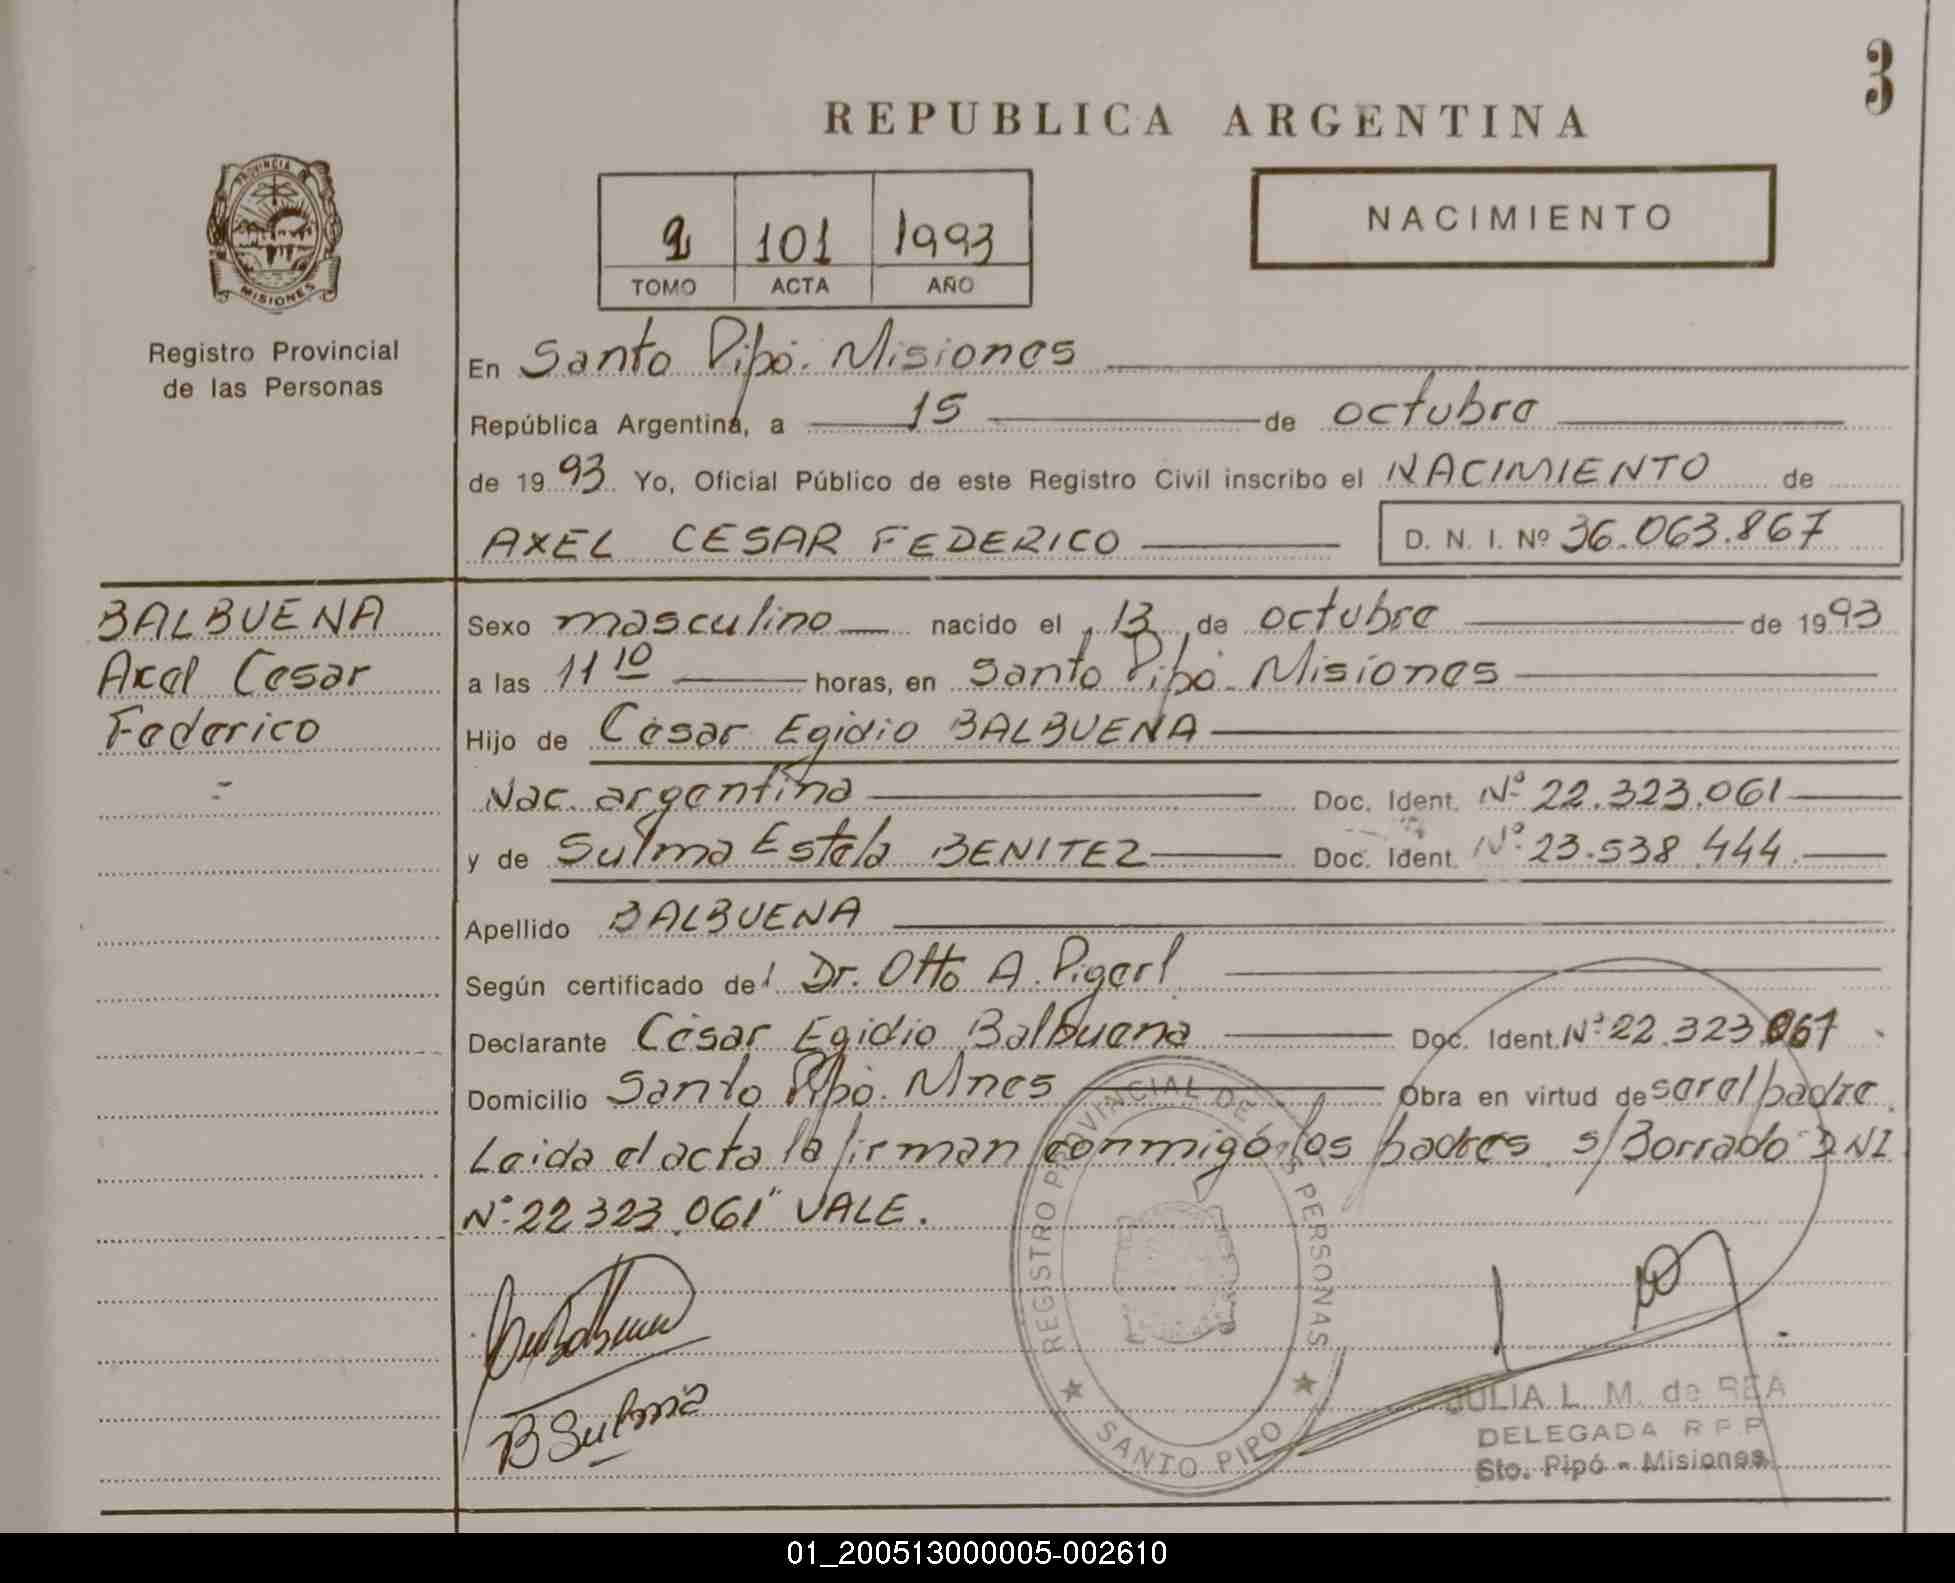 3
REPUBLICA ARGENTINA
PROVINCIA DE
MISIONES
Registro Provincial
de las Personas
101 1993
TOMO ACTA AÑO
NACIMIENTO
En Santo Pipó. Misiones
República Argentina, a 15 de octubre
de 1993 Yo, Oficial Público de este Registro Civil inscribo el NACIMIENTO de
AXEL CESAR FEDERICO D. N. I. Nº 36.063.867
BALBUENA
Axel Cesar
Federico
Sexo masculino nacido el 13 de octubre de 1993
a las 11 10 horas, en Santo Pipó. Misiones
Hijo de César Egidio BALBUENA
Nac. argentina Doc. Ident. Nº 22.323.061
y de Sulma Estela BENITEZ Doc. Ident. Nº 23.538.444
Apellido BALBUENA
Según certificado del Dr. Otto A. Pigerl
Declarante César Egidio Balbuena Doc. Ident. Nº 22.323.061
Domicilio Santo Pipó. Mnes Obra en virtud de ser el padre.
Leida el acta la firman conmigo los padres s/Borrado "DNI
Nº 22 323.061" VALE.
B Sulma
REGISTRO PROVINCIAL DE LAS PERSONAS
SANTO PIPO
JULIA L. M. de REA
DELEGADA R P P
Sto. Pipó - Misiones
01_200513000005-002610